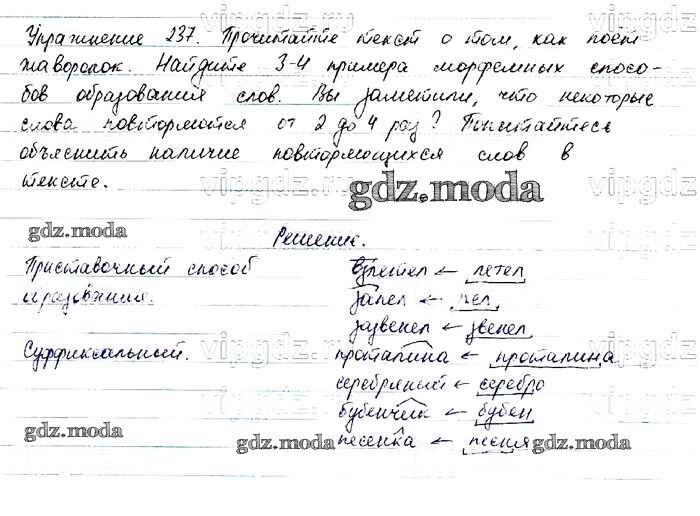 Упражнение 237. Прочитайте текст о том, как поёт
жаворонок. Найдите 3-4 примера морфемных спосо-
бов образования слов. Вы заметили, что некоторые
слова повторяются от 2 до 4 раз? Попытайтесь
объяснить наличие повторяющихся слов в
тексте.
gdz.moda
gdz.moda
Решение.
Приставочный способ взлетел ← летел
образования. запел ← пел
зазвенел ← звенел
Суффиксальный. проталина ← проталина
серебряный ← серебро
бубенчик ← бубен
песенка ← песня
gdz.moda gdz.moda gdz.moda
vipgdz.ru